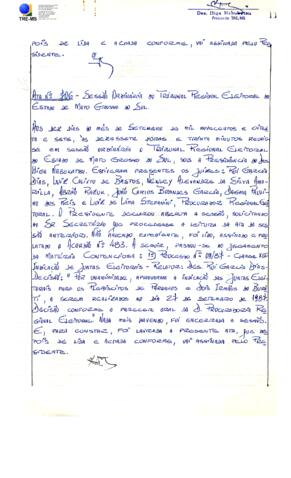 TRE-MS
11
Des. Higa Nabukatsu
Presidente TRE-MS
POIS DE LIDA E ACHADA CONFORME, VAI ASSINADA PELO PRE-
SIDENTE.
ATA Nº - SESSÃO ORDINÁRIA DO TRIBUNAL REGIONAL ELEITORAL DO
ESTADO DE MATO GROSSO DO SUL.
AOS DEZ DIAS DO MÊS DE SETEMBRO DE MIL NOVECENTOS E OITEN-
TA E SETE, ÀS DEZESSETE HORAS E TRINTA MINUTOS REUNIU-
SE EM SESSÃO ORDINÁRIA O TRIBUNAL REGIONAL ELEITORAL
DO ESTADO DE MATO GROSSO DO SUL, SOB A PRESIDÊNCIA DO DES.
HIGA NABUKATSU. ESTIVERAM PRESENTES OS JUÍZES: RUI GARCIA
DIAS, LUIZ CALITO DE BASTOS, ALEXANDRE DA SILVA
ABRÃO RAZUK, JOSÉ CARLOS GARCIA,
DOS REIS E LUIZ DE LIMA STEFANINI, PROCURADOR REGIONAL ELEI-
TORAL. O PRESIDENTE DECLAROU ABERTA A SESSÃO, SOLICITANDO
AO SR. SECRETÁRIO QUE PROCEDESSE A LEITURA DA ATA DA SES-
SÃO ANTERIOR. NÃO HAVENDO EMENDAS, FOI LIDO, ASSINADO E
O ACÓRDÃO Nº 483. A SEGUIR, PASSOU-SE AO JULGAMENTO
DA MATÉRIA CONTENCIOSA: 1) PROCESSO Nº 09/87 - CLASSE
INDICAÇÃO DE JUNTAS ELEITORAIS - RELATOR: DES. RUI GARCIA DIAS.
DECISÃO: "POR UNANIMIDADE, APROVARAM A INDICAÇÃO DAS JUNTAS ELEI-
TORAIS PARA OS PLEBISCITOS DE E DOIS IRMÃOS DO BURI-
TI, A SEREM REALIZADOS NO DIA 27 DE SETEMBRO DE 1987.
DECISÃO CONFORME O PARECER ORAL DA D. PROCURADORIA RE-
GIONAL ELEITORAL". NADA MAIS HAVENDO, FOI ENCERRADA A SESSÃO.
E, PARA CONSTAR, FOI LAVRADA A PRESENTE ATA, QUE DE-
POIS DE LIDA E ACHADA CONFORME, VAI ASSINADA PELO PRE-
SIDENTE.